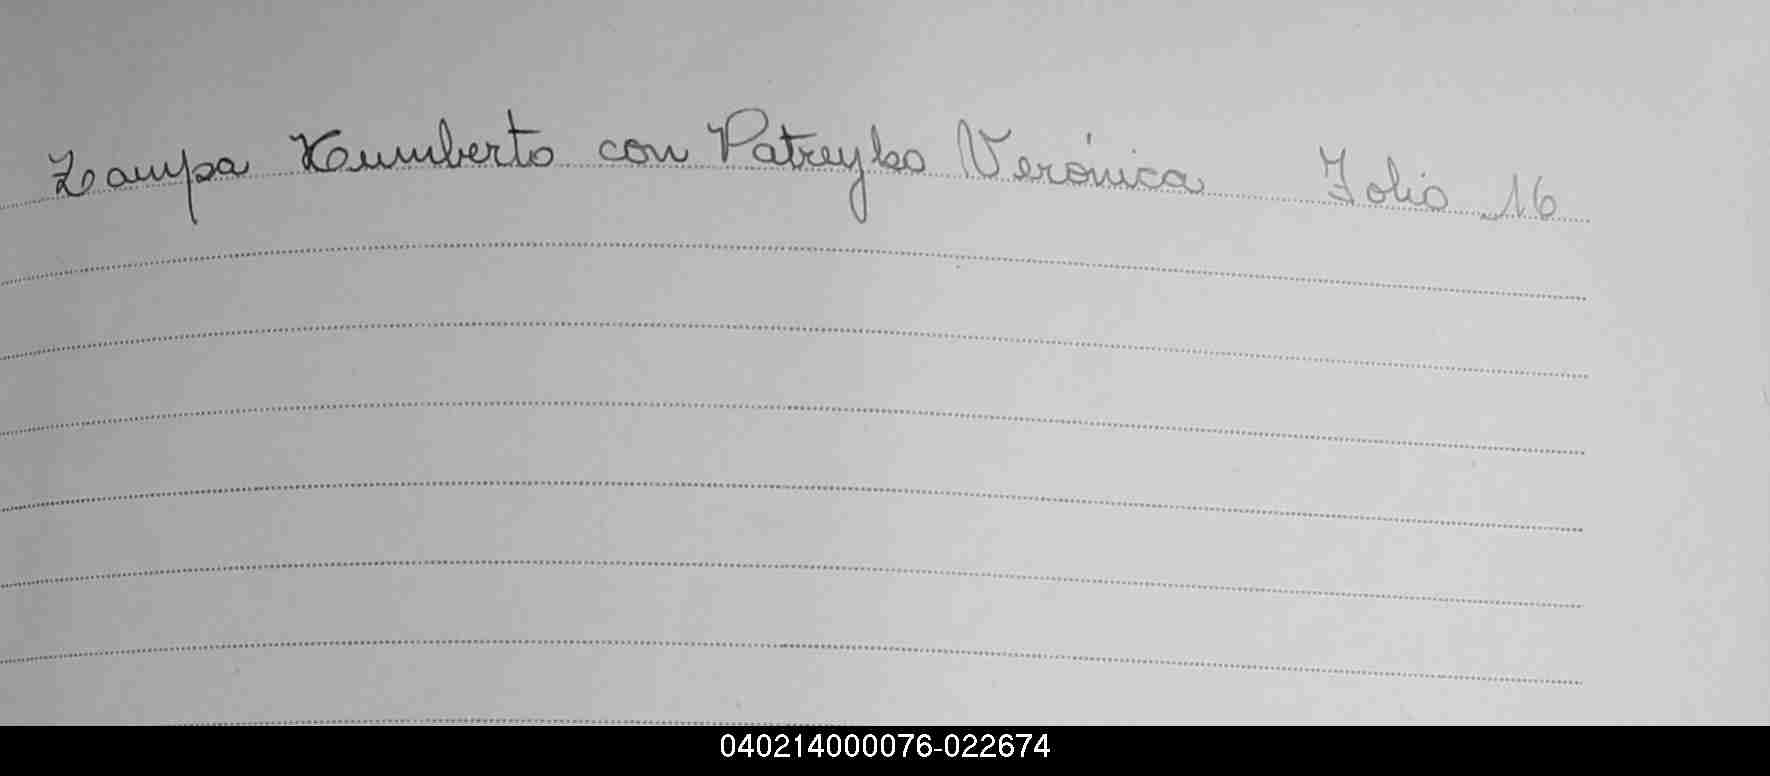 Zampa Humberto con Patreyko Verónica Folio 16
040214000076-022674